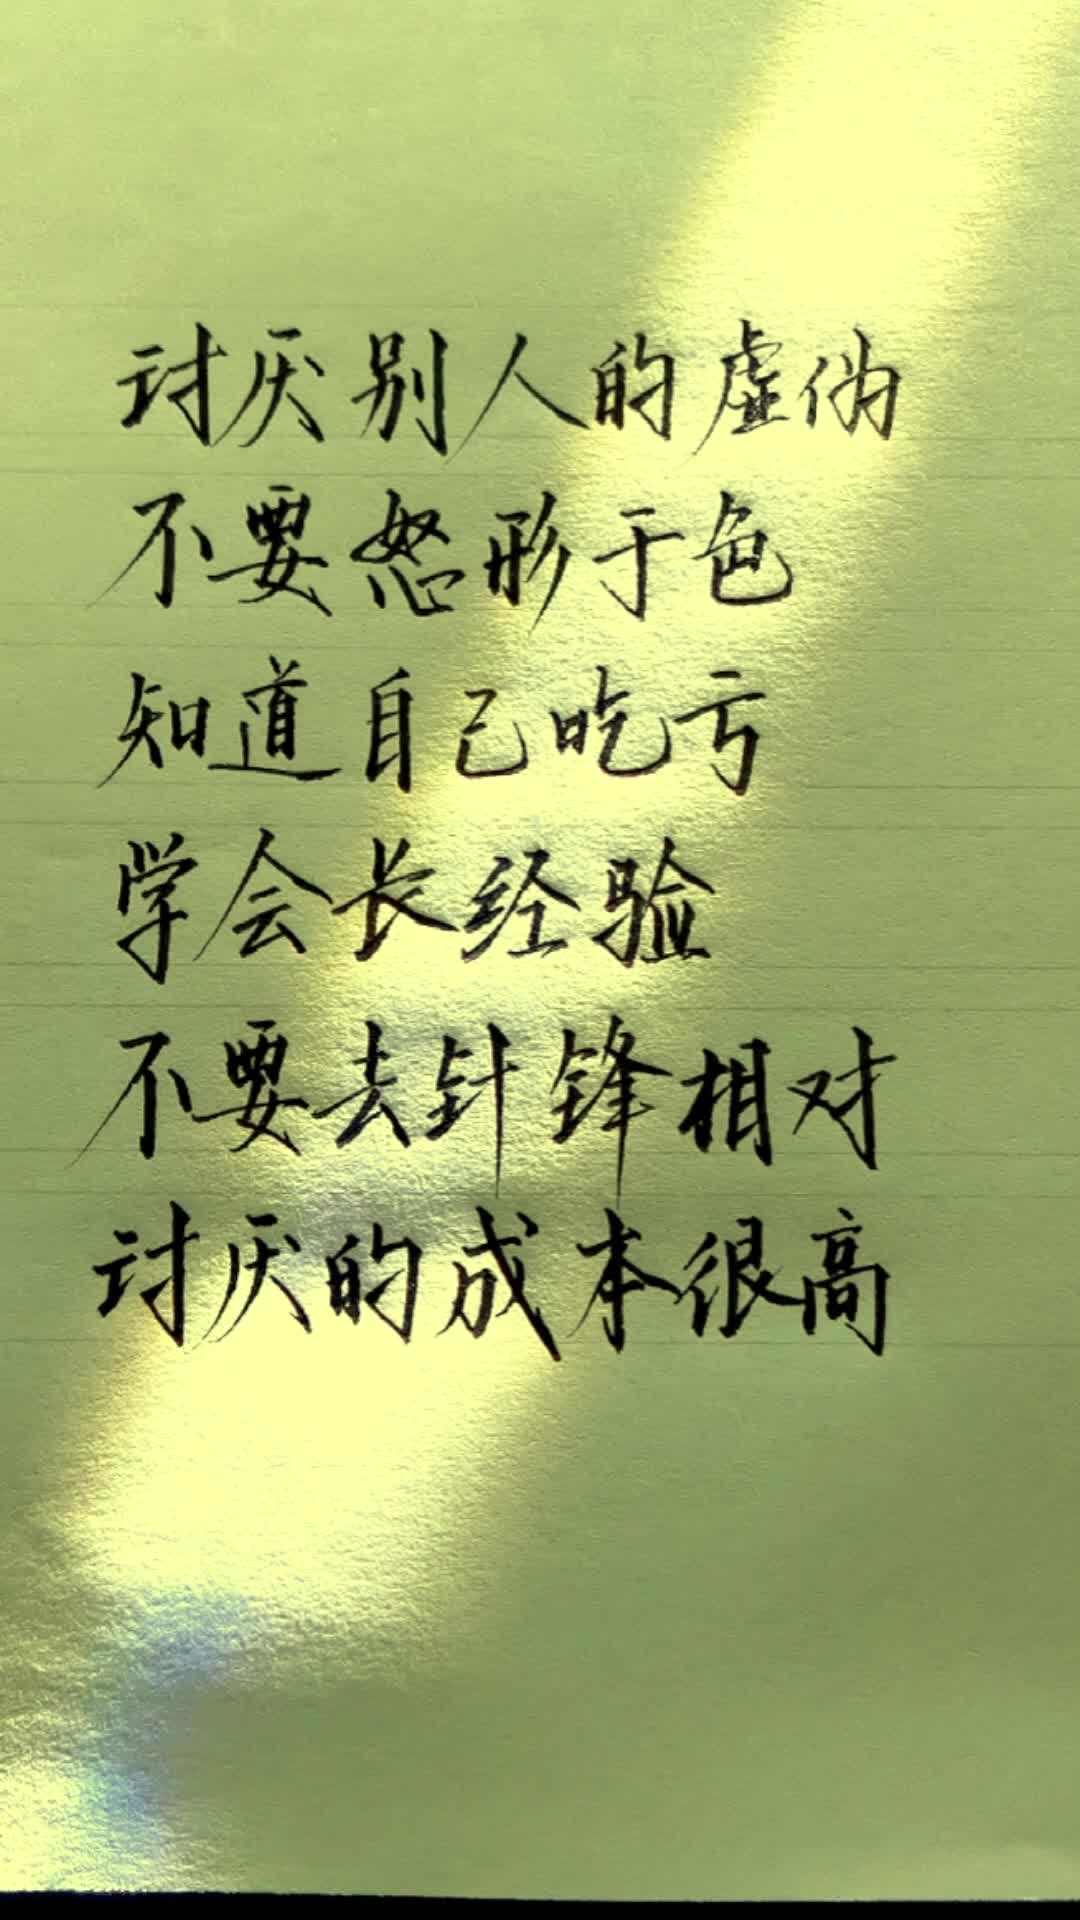 讨厌别人的虚伪
不要怒形于色
知道自己吃亏
学会长经验
不要去针锋相对
讨厌的成本很高